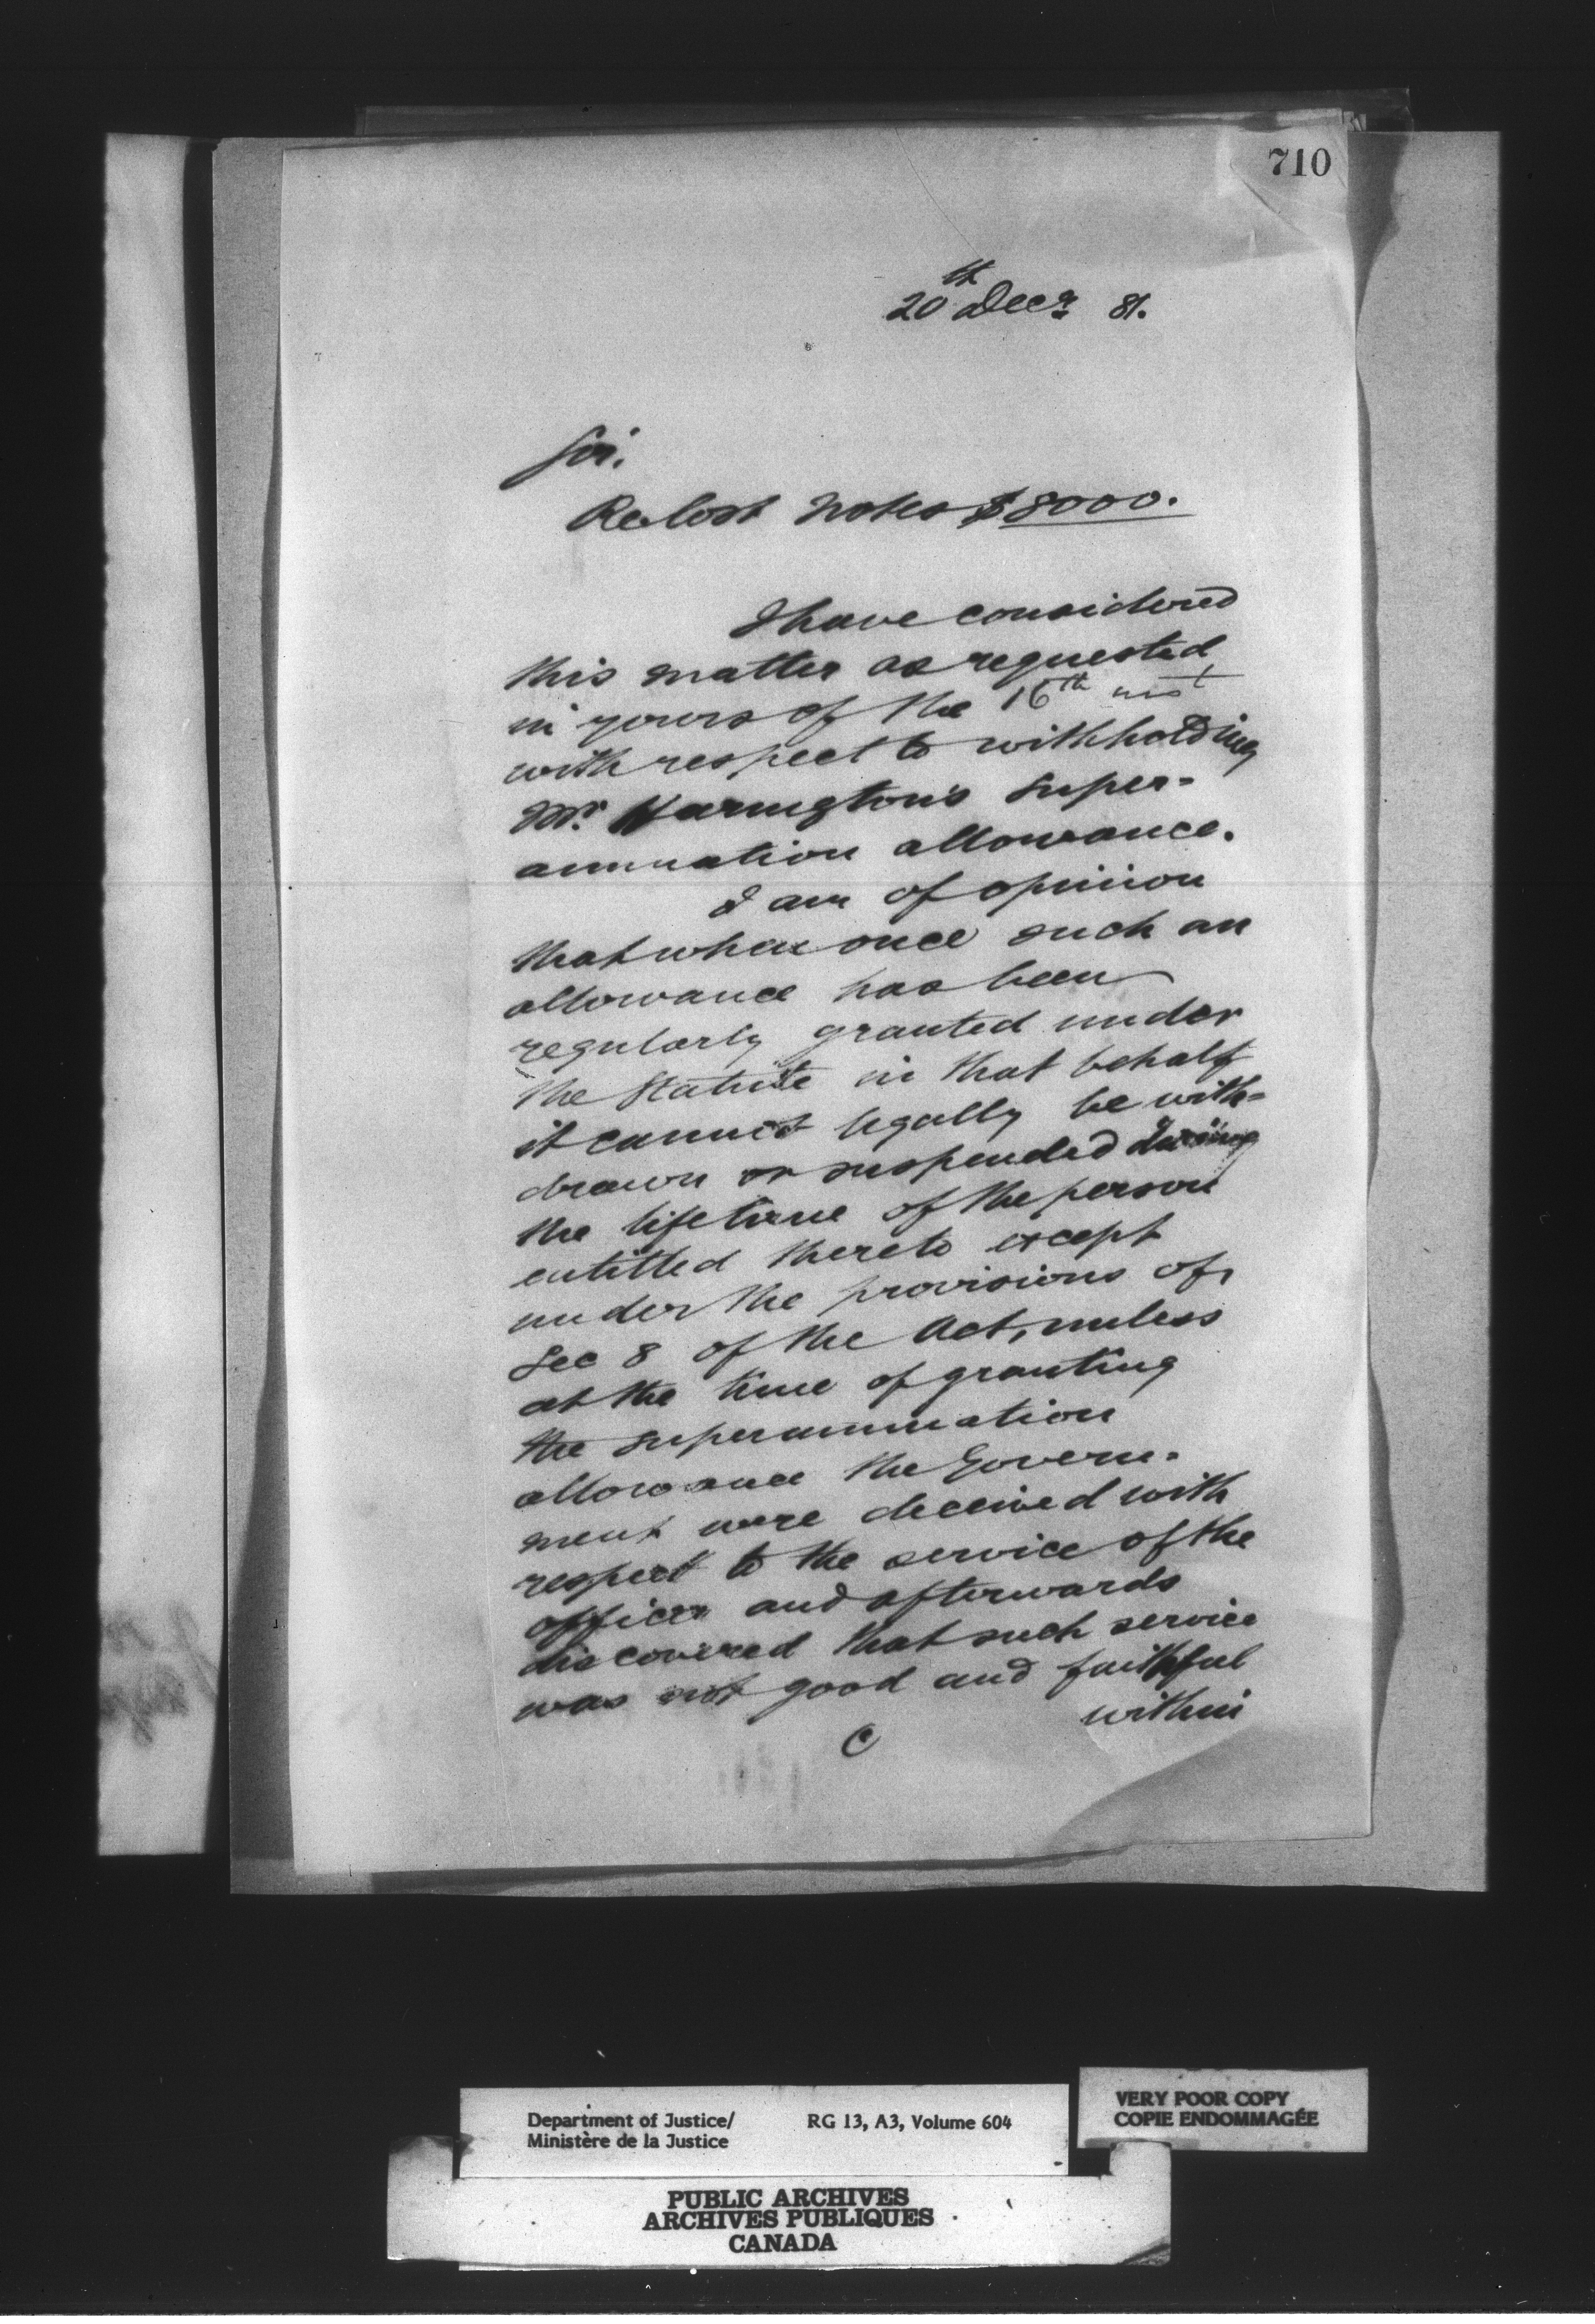 710
20th Decr. 81.
Sir.
Re lost notes $8000.
I have considered
this matter as requested
in yours of the 16th inst
with respect to withholding
Mr. Harington's super-
annuation allowance.
I am of opinion
that when once such an
allowance has been
regularly granted under
the Statute in that behalf
it cannot legally be with-
drawn or suspended during
the lifetime of the person
entitled thereto except
under the provisions of
Sec 8 of the Act, unless
at the time of granting
the superannuation
allowance the Govern-
ment were deceived with
respect to the service of the
officer and afterwards
discovered that such service
was not good and faithful
within
C
Department of Justice/
Ministère de la Justice
RG 13, A3, Volume 604
VERY POOR COPY
COPIE ENDOMMAGÉE
PUBLIC ARCHIVES
ARCHIVES PUBLIQUES
CANADA